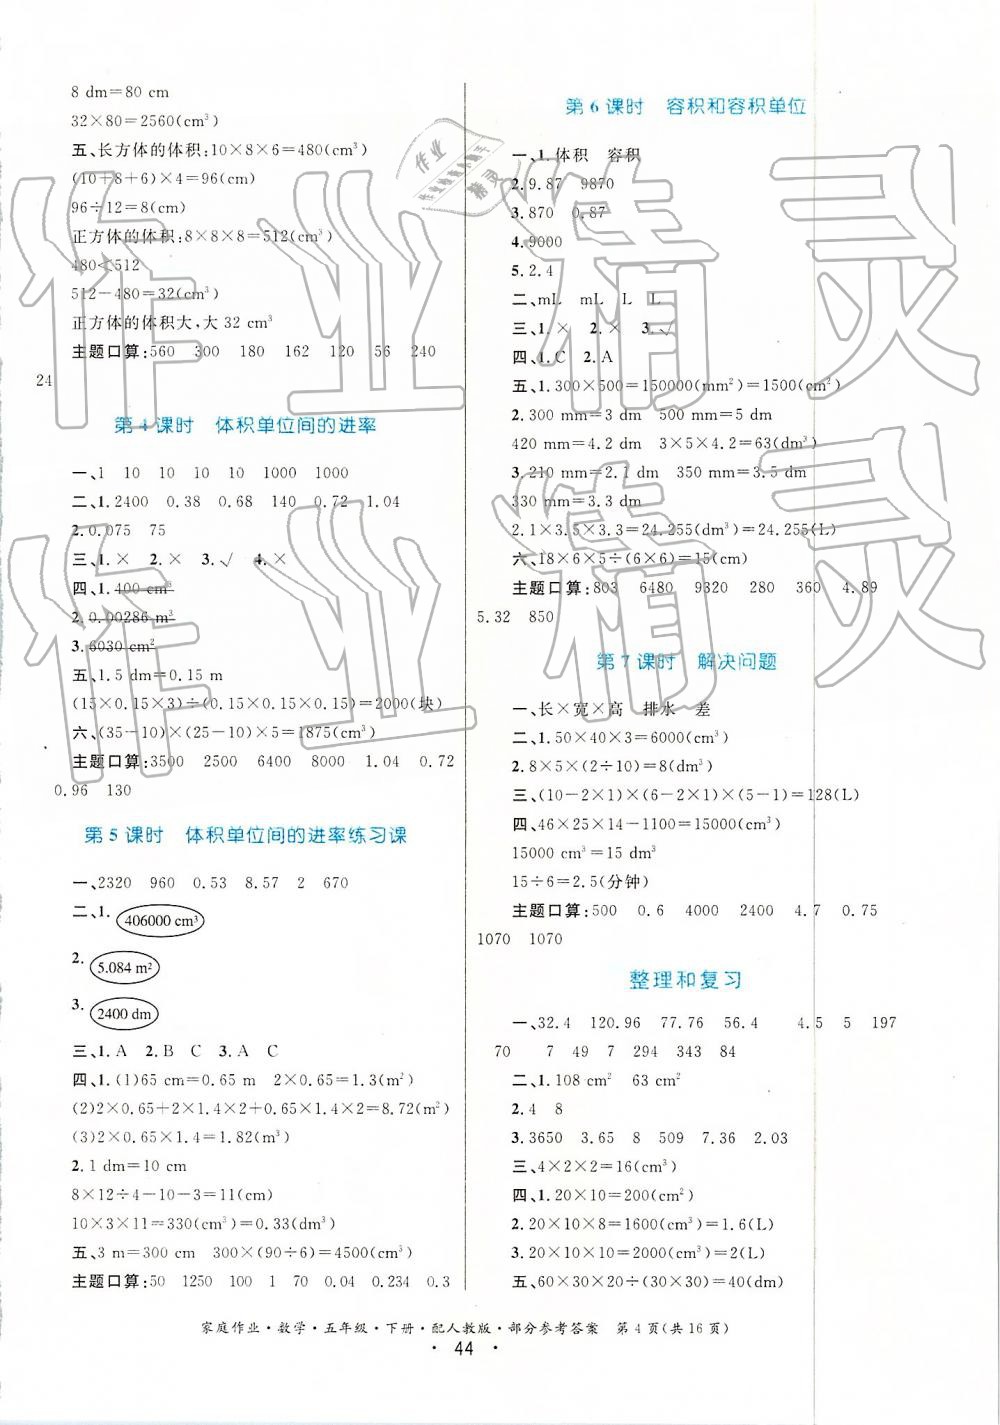 8 dm=80 cm
32×80=2560(cm³)
五、长方体的体积:10×8×6=480(cm³)
(10+8+6)×4=96(cm)
96÷12=8(cm)
正方体的体积:8×8×8=512(cm³)
480<512
512-480=32(cm³)
正方体的体积大,大 32 cm³
主题口算:560 300 180 162 120 56 240
24
第 4 课时 体积单位间的进率
一、1 10 10 10 10 1000 1000
二、1.2400 0.38 0.68 140 0.72 1.04
2.0.075 75
三、1.× 2.× 3.√ 4.×
四、1.400 cm²
2.0.00286 m³
3.6030 cm²
五、1.5 dm=0.15 m
(15×0.15×3)÷(0.15×0.15×0.15)=2000(块)
六、(35-10)×(25-10)×5=1875(cm³)
主题口算:3500 2500 6400 8000 1.04 0.72
0.96 130
第 5 课时 体积单位间的进率练习课
一、2320 960 0.53 8.57 2 670
二、1. 406000 cm³
2. 5.084 m²
3. 2400 dm
三、1.A 2.B C 3.A C
四、1.(1)65 cm=0.65 m 2×0.65=1.3(m²)
(2)2×0.65+2×1.4×2+0.65×1.4×2=8.72(m²)
(3)2×0.65×1.4=1.82(m³)
2.1 dm=10 cm
8×12÷4-10-3=11(cm)
10×3×11=330(cm³)=0.33(dm³)
五、3 m=300 cm 300×(90÷6)=4500(cm³)
主题口算:50 1250 100 1 70 0.04 0.234 0.3
第 6 课时 容积和容积单位
一、1.体积 容积
2.9.87 9870
3.870 0.87
4.9000
5.2.4
二、mL mL L L
三、1.× 2.× 3.√
四、1.C 2.A
五、1.300×500=150000(mm²)=1500(cm²)
2.300 mm=3 dm 500 mm=5 dm
420 mm=4.2 dm 3×5×4.2=63(dm³)
3.210 mm=2.1 dm 350 mm=3.5 dm
330 mm=3.3 dm
2.1×3.5×3.3=24.255(dm³)=24.255(L)
六、18×6×5÷(6×6)=15(cm)
主题口算:803 6480 9320 280 360 4.89
5.32 850
第 7 课时 解决问题
一、长×宽×高 排水 差
二、1.50×40×3=6000(cm³)
2.8×5×(2÷10)=8(dm³)
三、(10-2×1)×(6-2×1)×(5-1)=128(L)
四、46×25×14-1100=15000(cm³)
15000 cm³=15 dm³
15÷6=2.5(分钟)
主题口算:500 0.6 4000 2400 4.7 0.75
1070 1070
整理和复习
一、32.4 120.96 77.76 56.4 4.5 5 197
70 7 49 7 294 343 84
二、1.108 cm² 63 cm²
2.4 8
3.3650 3.65 8 509 7.36 2.03
三、4×2×2=16(cm³)
四、1.20×10=200(cm²)
2.20×10×8=1600(cm³)=1.6(L)
3.20×10×10=2000(cm³)=2(L)
五、60×30×20÷(30×30)=40(dm)
家庭作业·数学·五年级·下册·配人教版·部分参考答案 第 4 页(共 16 页)
· 44 ·
作业精灵
作业精灵